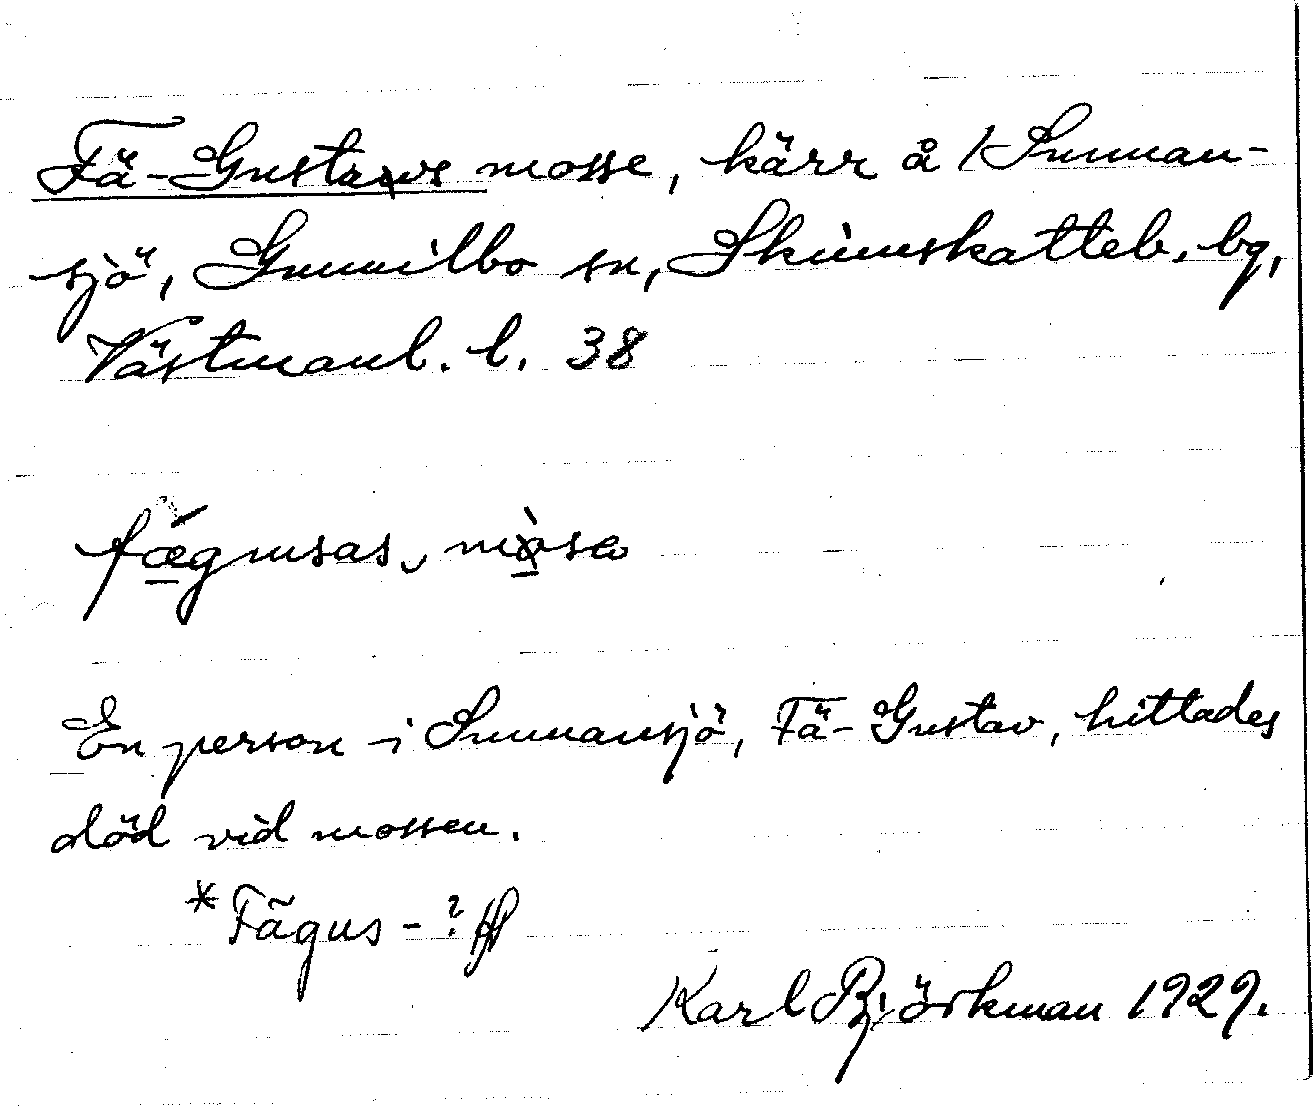 Fä-Gustavs mosse, kärr å 1 Sunnan-
sjö, Gunnilbo sn, Skinnskatteb. bg,
Västmanl. l. 38
fægusas, måsa
En person i Sunnansjö, Fä-Gustav, hittades
död vid mossen.
*Fägus-?
Karl Björkman 1929.